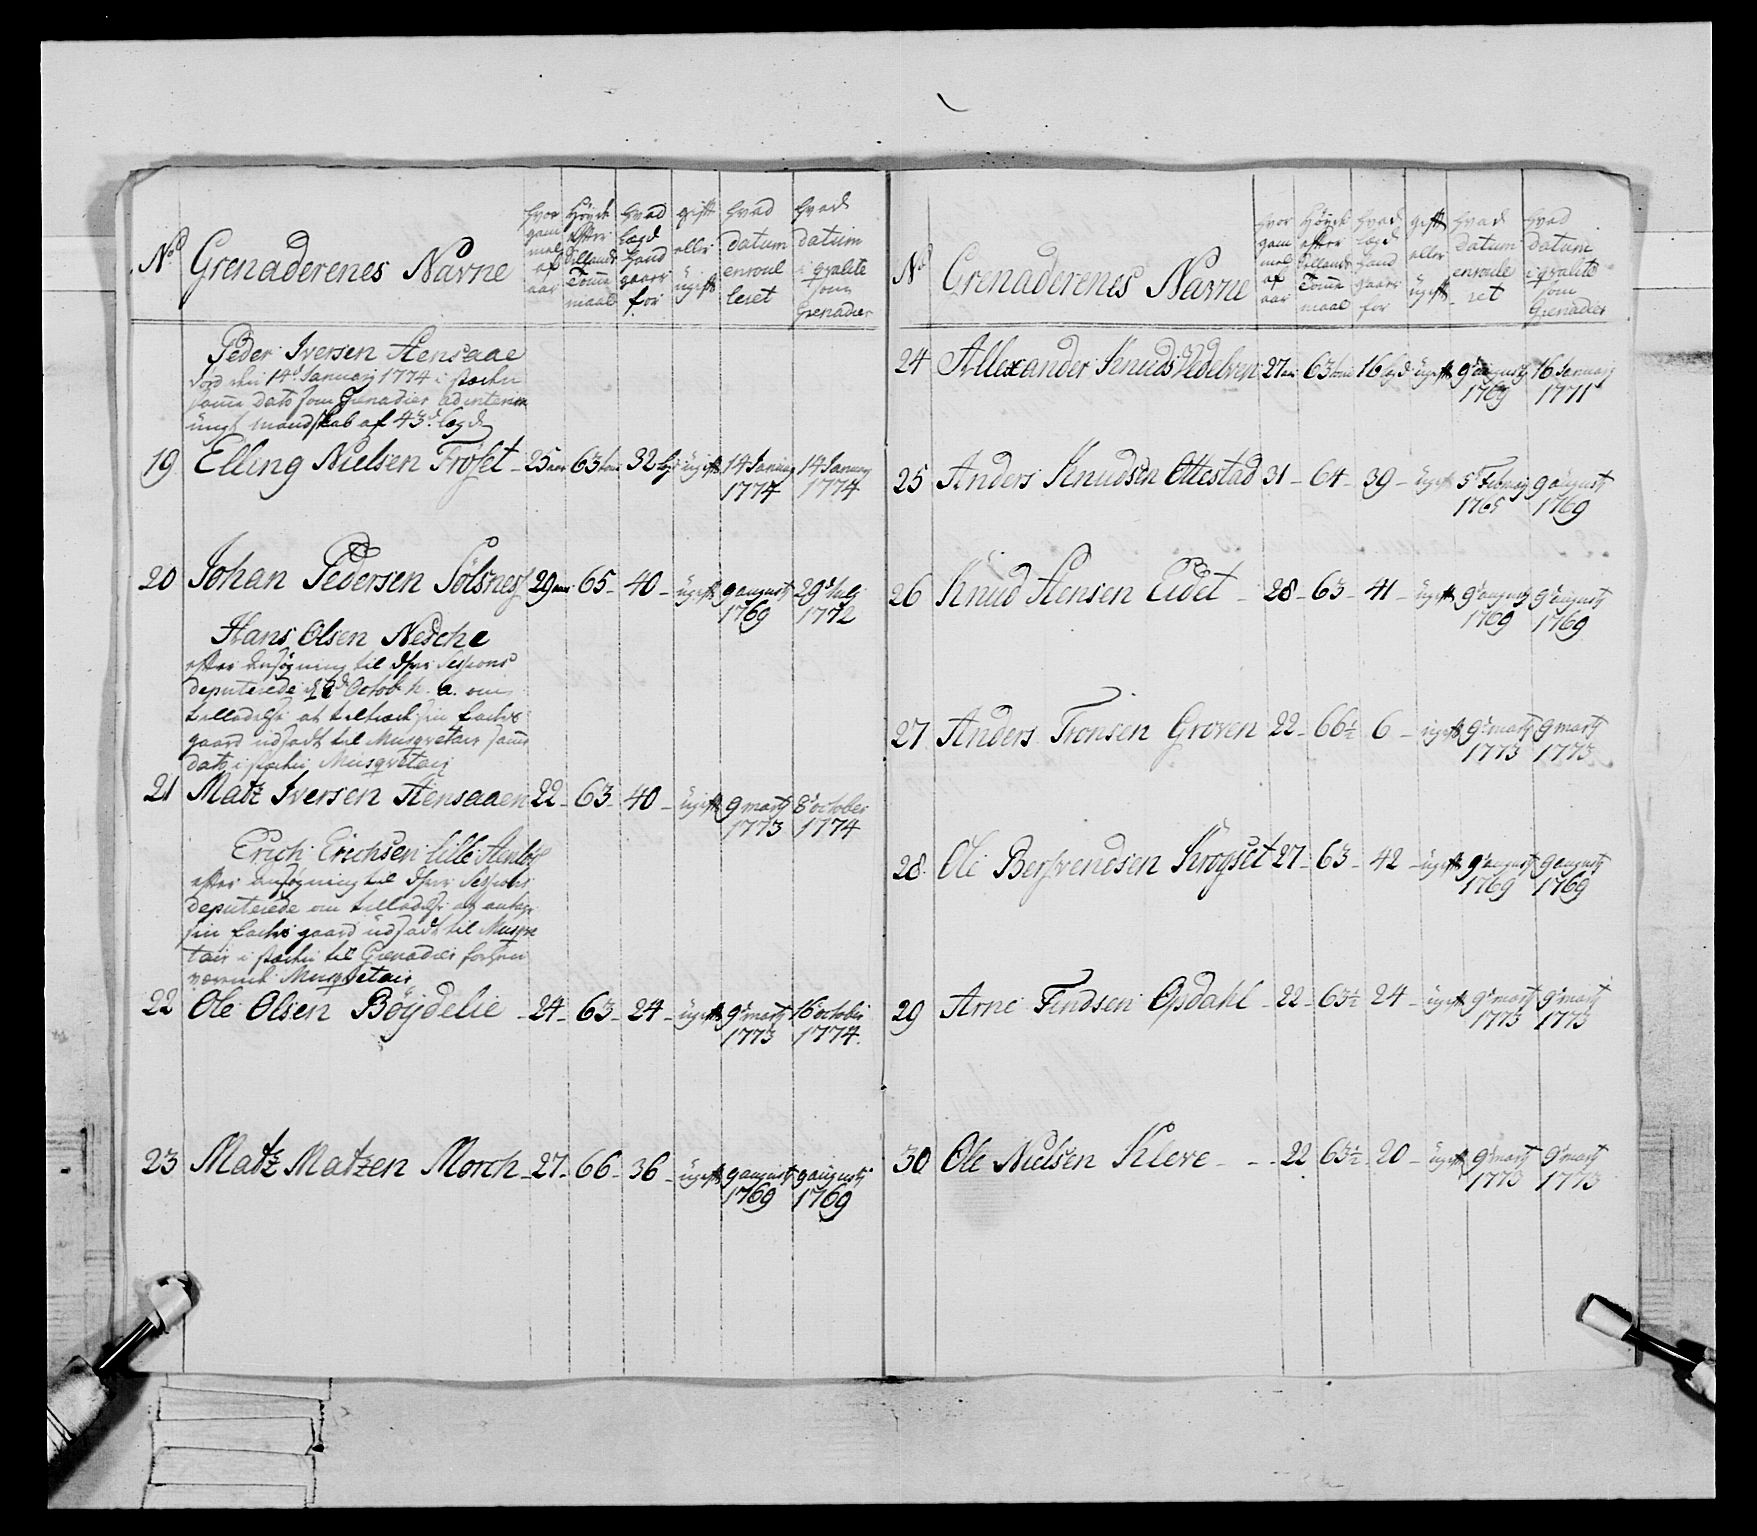 No
Grenaderenes Navne
hvor gammel af aar
Höyde efter Sillands Tomme maal
hvad Lægd hand gaaer for
gift eller ugift
hvad datum enroulleret
hvad datum i qvalite som Grenadier
Peder Iversen Stensaae
død den 14d Januarij 1774 i stæden
samme dato som Grenadier ad interim
ungt mandskab af 43d lægd
19 Elling Nielsen Fröset - 25 aar 63 tom 32 lægd ugift 14 Januarij 1774 14 Januarij 1774
20 Johan Pedersen Sölsnes 29 aar 65 - 40 - ugift 9 augusti 1769 29d Julij 1772
Hans Olsen Nesche
efter ansøgning til Sessions
deputerede d 8d Octob: h. a. om
tilladelse at tiltræde sin fæste
gaard udsadt til Musqvetair samme
dato i stæden Musqvetair
21 Matz Iversen Stensaaen 22 - 63 - 40 - ugift 9 martj 1773 8d october 1774
Erich Erichsen lille
efter ansøgning til Sessions
deputerede om tilladelse at antage
sin fæste gaard udsadt til Musqve
tair i stæden til Grenadier
Musqvetair
22 Ole Olsen Böydelie - 24 - 63 - 24 - ugift 9d martj 1773 16 october 1774.
23 Matz Matzen Morch - 27 - 66 - 36 - ugift 9 augustj 1769 9 augustj 1769
No
Grenaderenes Navne
hvor gammel af aar
Höyde efter Sillands Tomme maal
hvad Lægd hand gaaer for
gift eller ugift
hvad datum enroulleret
hvad datum i qvalite som Grenadier
24 Allexander Knuds Vedelven 27 aar 63 tom 16 lægd ugift 9d augustj 1769 16 Januarj 1771
25 Anders Knudsen Ottestad 31 - 64 - 39 - ugift 5d Februarj 1765 9 augustj 1769
26 Knud Stensen Eidet - 28 - 63 - 41 - ugift 9d augustj 1769 9d augustj 1769
27 Anders Tronsen Groven 22 - 66½ 6 - ugift 9d martj 1773 9 martj 1773
28 Ole Bersvendsen Krogset 27 - 63 - 42 - ugift 9d augustj 1769 9 augustj 1769
29 Arne Findsen Opdahl - 22 - 63½ 24 - ugift 9d martj 1773 9d martj 1773
30 Ole Nielsen Kleve - - - 22 63½ - 20 - ugift 9d martj 1773 9d martj 1773